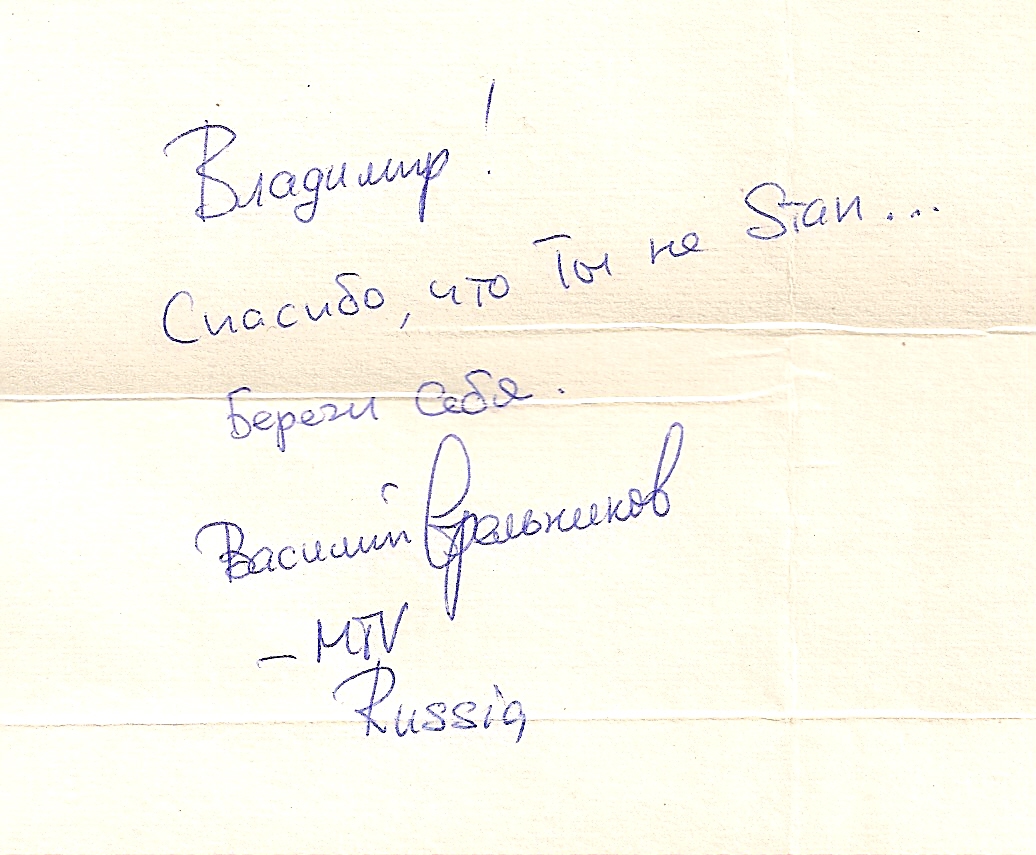 Владимир!
Спасибо, что Ты не Stan...
Береги Себя.
Василий Стрельников
– MTV
Russia